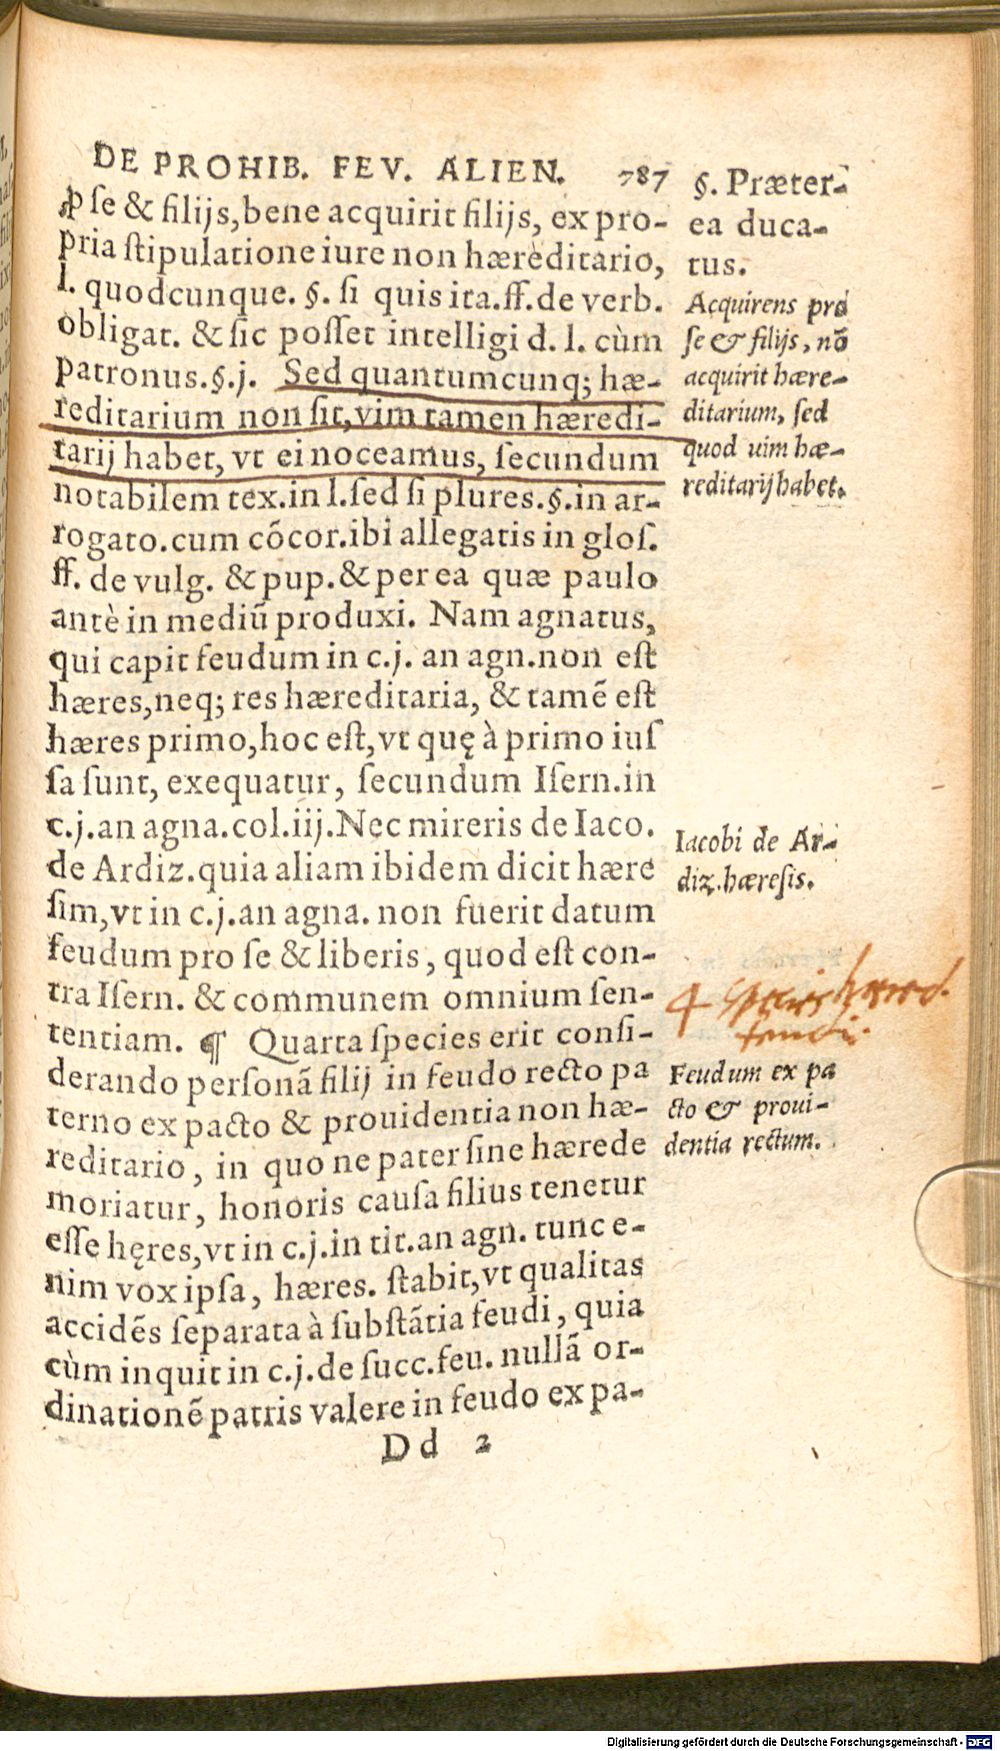 DE PROHIB. FEV. ALIEN. 787
ꝓ se & filijs, bene acquirit filijs, ex pro-
pria stipulatione iure non hæreditario,
l. quodcunque. §. si quis ita. ff. de verb.
obligat. & sic posset intelligi d. l. cùm
patronus. §. j. Sed quantumcunq; hæ-
reditarium non sit, vim tamen hæredi-
tarij habet, vt ei noceamus, secundum
notabilem tex. in l. sed si plures. §. in ar-
rogato. cum cõcor. ibi allegatis in glos.
ff. de vulg. & pup. & per ea quæ paulo
antè in mediũ produxi. Nam agnatus,
qui capit feudum in c. j. an agn. non est
hæres, neq; res hæreditaria, & tamẽ est
hæres primo, hoc est, vt quę à primo ius
sa sunt, exequatur, secundum Isern. in
c. j. an agna. col. iij. Nec mireris de Iaco.
de Ardiz. quia aliam ibidem dicit hære
sim, vt in c. j. an agna. non fuerit datum
feudum pro se & liberis, quod est con-
tra Isern. & communem omnium sen-
tentiam. ¶ Quarta species erit consi-
derando personã filij in feudo recto pa
terno ex pacto & prouidentia non hæ-
reditario, in quo ne pater sine hærede
moriatur, honoris causa filius tenetur
esse hęres, vt in c. j. in tit. an agn. tunc e-
nim vox ipsa, hæres. stabit, vt qualitas
accidẽs separata à substãtia feudi, quia
cùm inquit in c. j. de succ. feu. nullã or-
dinationẽ patris valere in feudo ex pa-
Dd 2
§. Præter-
ea duca-
tus.
Acquirens pro
se & filijs, nõ
acquirit hære-
ditarium, sed
quod uim hæ-
reditarij habet.
Iacobi de Ar-
diz. hæresis.
4
Feudum ex pa
cto & proui-
dentia rectum.
Digitalisierung gefördert durch die Deutsche Forschungsgemeinschaft - DFG